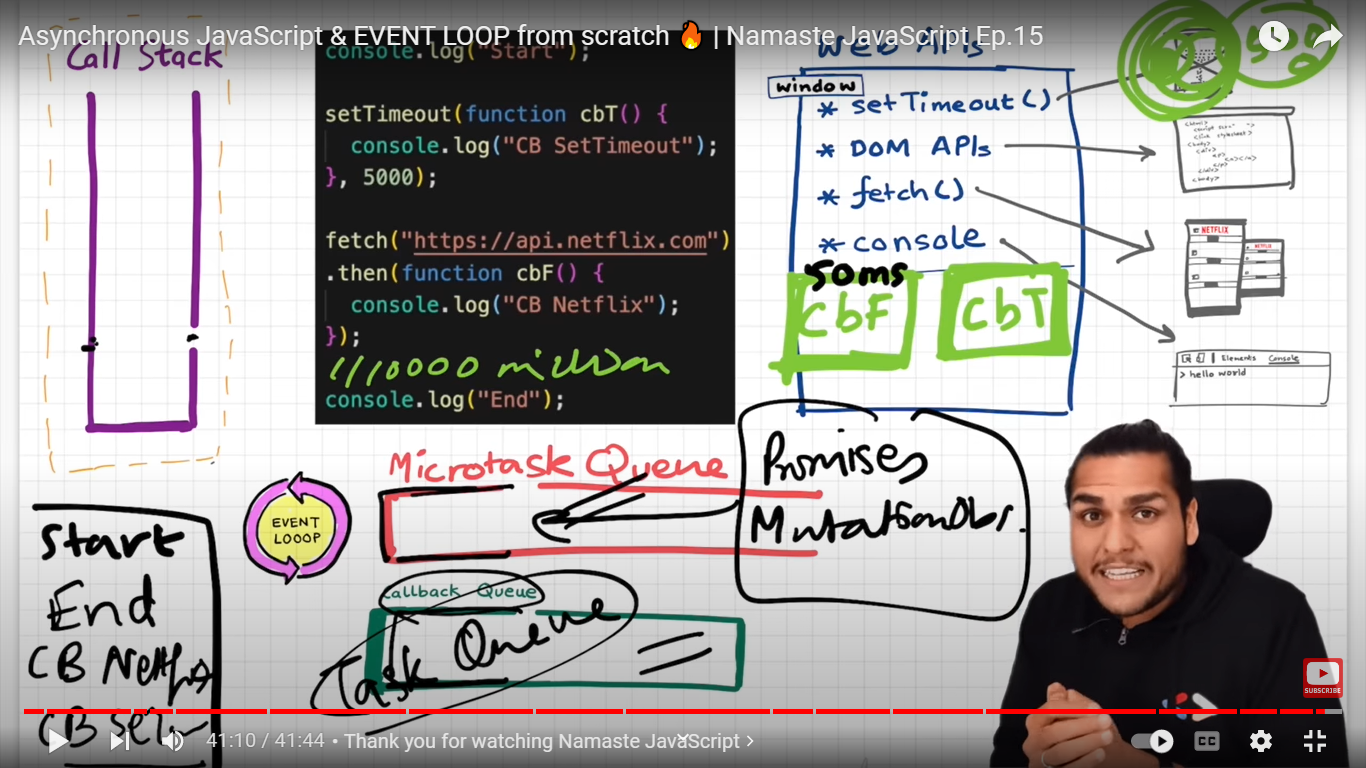 Asynchronous JavaScript & EVENT LOOP from scratch 🔥 | Namaste JavaScript Ep.15
Call Stack
console.log("Start");
setTimeout(function cbT() {
console.log("CB SetTimeout");
}, 5000);
fetch("https://api.netflix.com")
.then(function cbF() {
console.log("CB Netflix");
});
million
console.log("End");
Web APIs
window
* setTimeout()
* DOM APIs
* fetch()
* console
50ms
CbF
CbT
NETFLIX
NETFLIX
Elements Console
> hello world
Microtask Queue
Promises
MutationObs.
EVENT
LOOOP
Callback Queue
Task Queue
Start
End
CB Netflix
CB
SUBSCRIBE
41:10 / 41:44 • Thank you for watching Namaste JavaScript >
CC